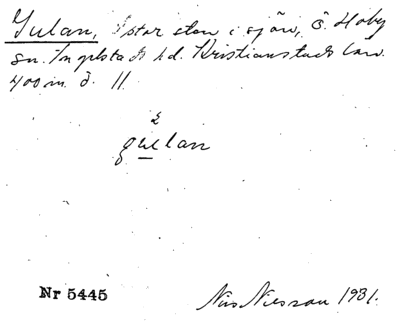 Gulan, stor sten i sjön, Ö. Hoby
sn. Ingelsta hd. Kristianstads län.
400 m. ö. 11.
2
gulan
Nr 5445
Nils Nilsson 1931.